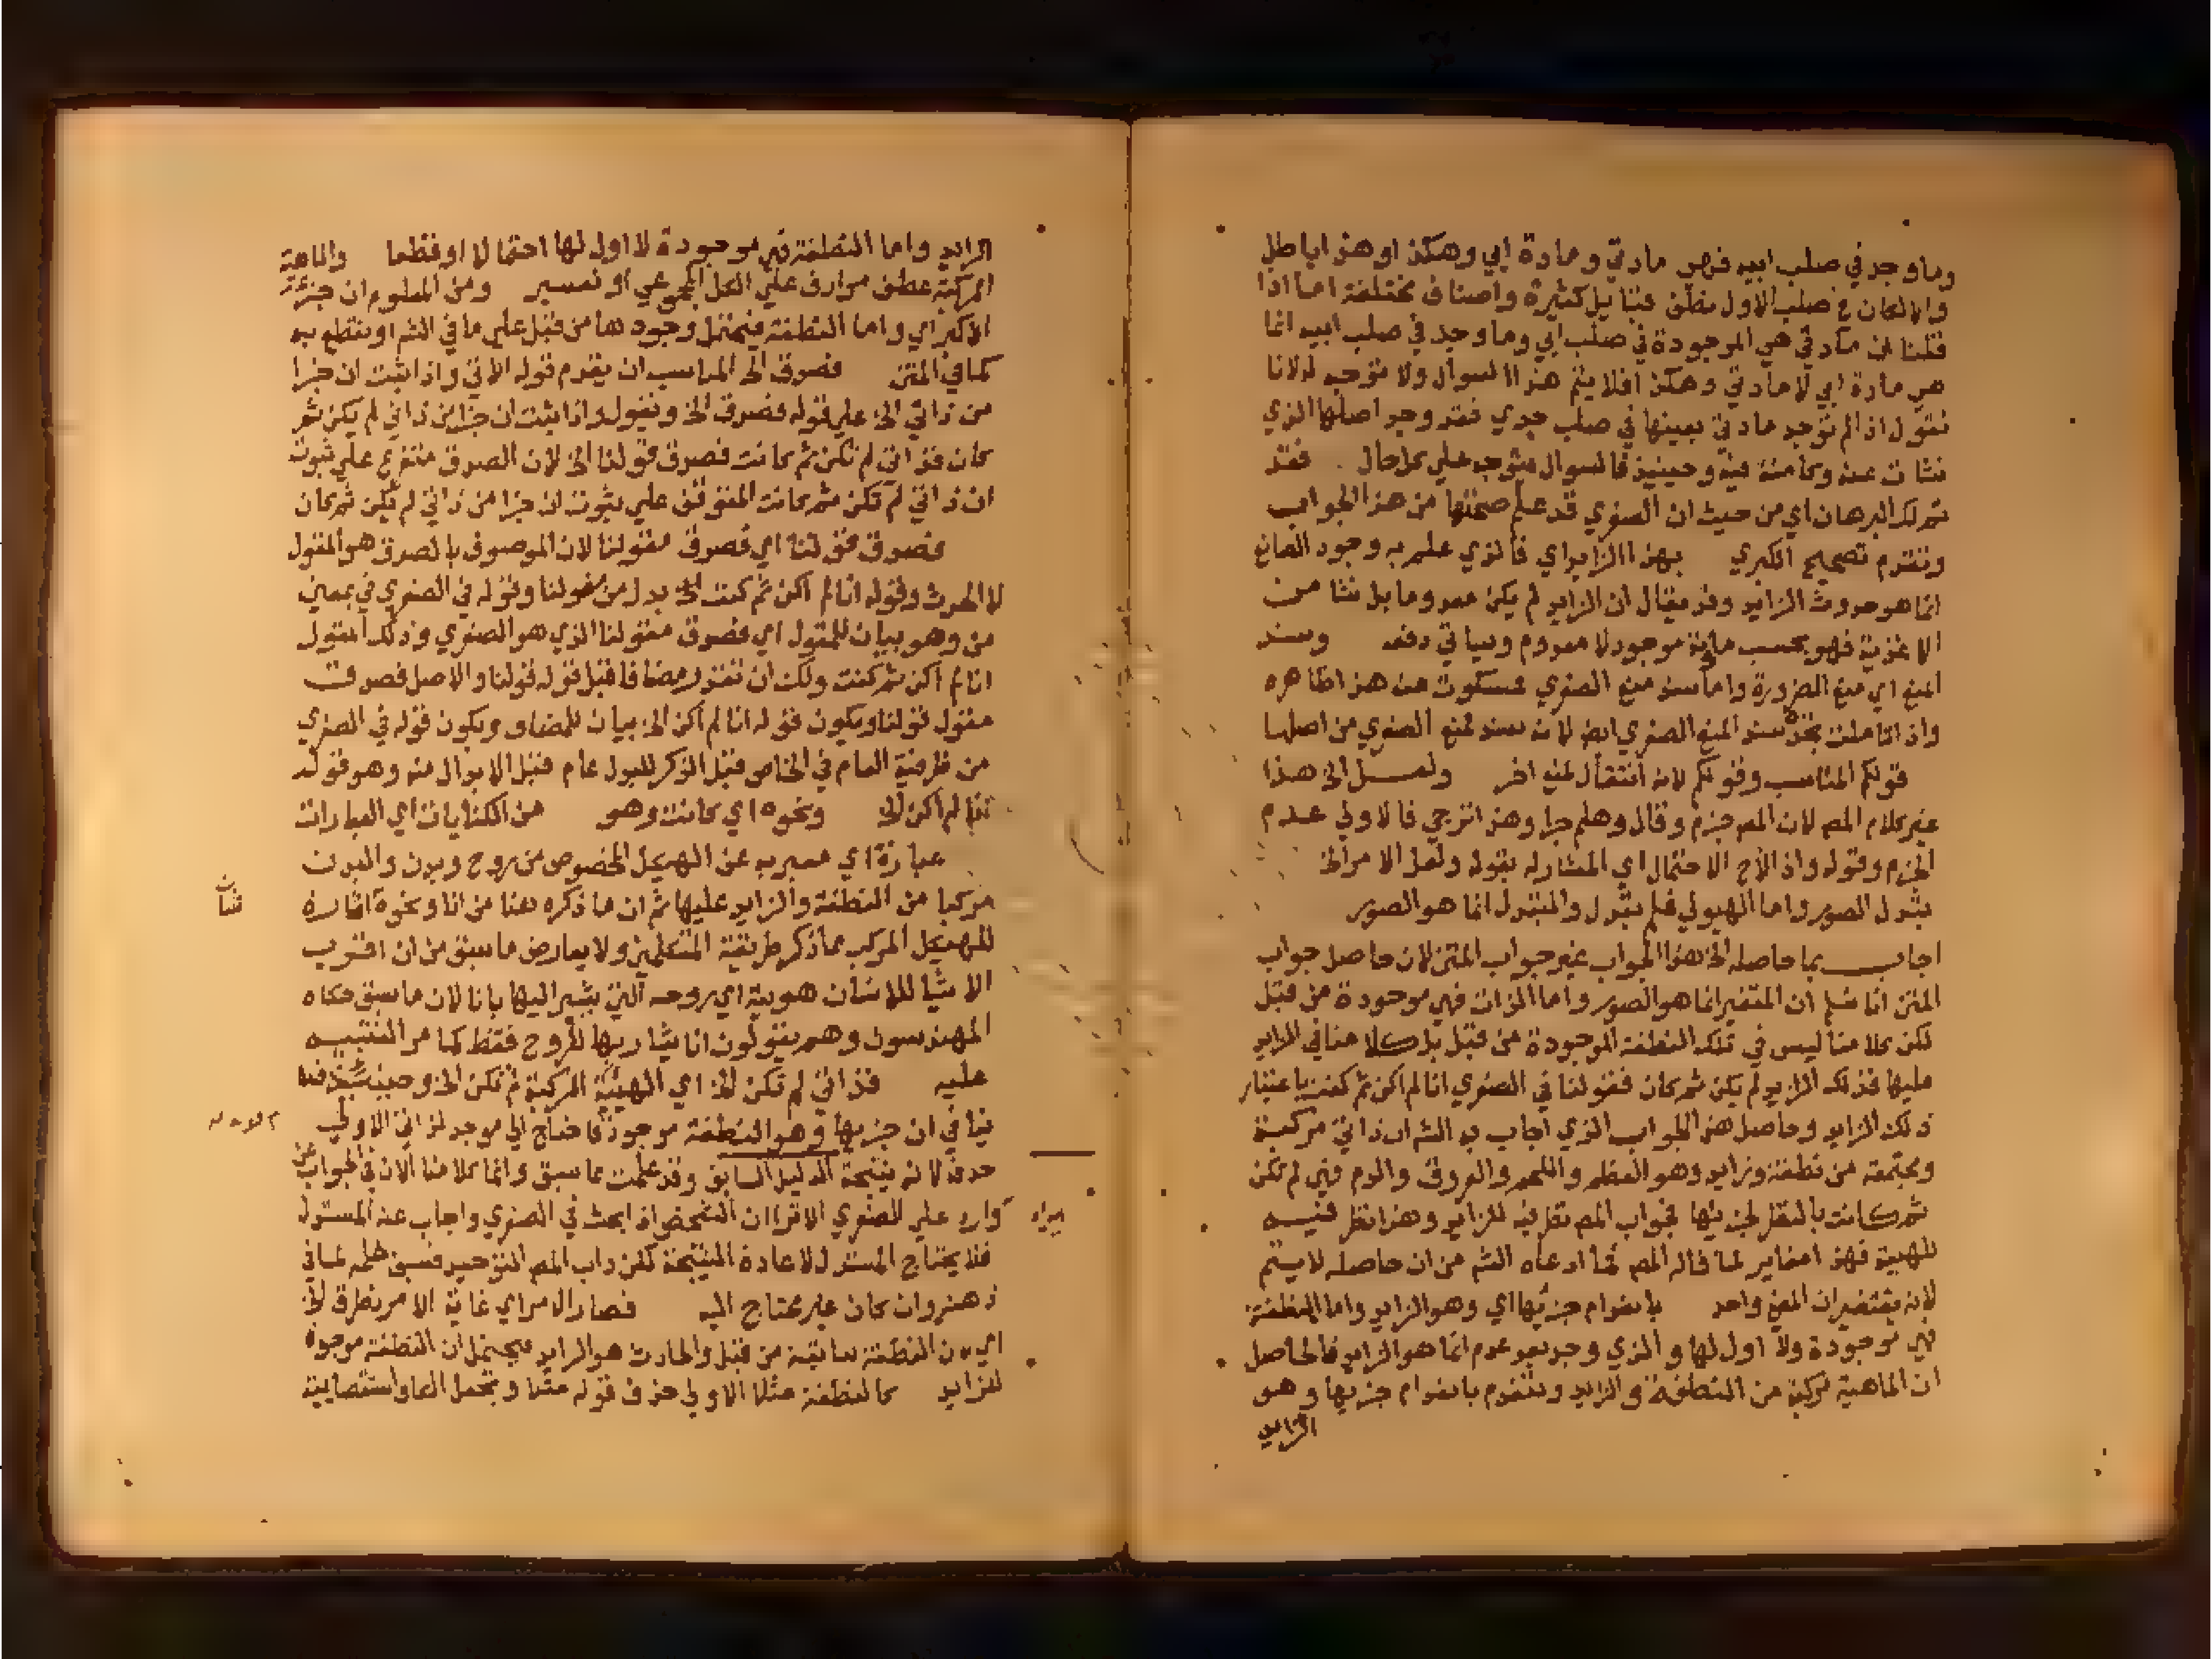 وما وجد في صلب ابيه فهي مادتي ومادة ابي وهكذا وهذا باطل
والا لكان في صلب الاول نطف قبايل كثيرة واصناف مختلفة اما اذا
قلنا ان مادتي هي الموجودة في صلب ابي وما وجد في صلب ابيه انما
هي مادة ابي لا مادتي وهكذا فلا يتم هذا السوال ولا توجيه له لانا
نقول اذا لم توجد مادتي بعينها في صلب جدي فقد وجد اصلها الذي
نشات عنه وكامنة فيه وحينيذ فالسوال متوجه علي كل حال فقد
تم لك البرهان اي من حيث ان الصغري قد علم صحتها من هذا الجواب
وتقدم تصحيح الكبري بهذا الزايد اي فالذي علم به وجود الصانع
انما هو حدوث الزايد وقد يقال ان الزايد لم يكن معدوما بل نشا من
الاغذية فهو بحسب مادته موجود لا معدوم وسياتي دفعه وسند
المنع اي منع الضرورة واما سند منع الصغري فسكوت عنه هذا ظاهره
واذا تاملت تجد سند المنع الصغري ايض لانه سند لمنع الصغري من اصلها
قولكم المناسب وقولكم لانه انتقال لمنع اخر ولعل الخ هذا
غير كلام المص لان المص جزم وقال وهلم جرا وهذا ترجي فالاولي عدم
الجزم وقوله واذا لاح الاحتمال اي المشار له بقوله ولعل الامر الخ
تبدل الصور واما الهيولي فلم تبدل والمتبدل انما هو الصور
اجاب بما حاصله الخ هذا الجواب غير جواب المتن لان حاصل جواب
المتن انا نسلم ان المتغير انما هو الصور واما الذات فهي موجودة من قبل
لكن كلامنا ليس في تلك النطفة الموجودة من قبل بل كلامنا في الزايد
عليها فذلك الزايد لم يكن ثم كان فقولنا في الصغري انا لم اكن ثم كنت باعتبار
ذلك الزايد وحاصل هذا الجواب الذي اجاب به الشم ان ذاتي مركبة
ومجتمعة من نطفة وزايد وهو العظم واللحم والعروق والدم فهي لم تكن
ثم كانت بالنظر لجزييها فجواب المص نظر فيه للزايد وهذا نظر فيه
للهيية فهذا مغاير لما قاله المص فما ادعاه الشم من ان حاصله لا يتم
لانه يقتضي ان المعني واحد بانعدام جزيها اي وهو الزايد واما النطفة
فهي موجودة ولا اول لها والذي وجد بعد عدم انما هو الزايد فالحاصل
ان الماهية مركبة من النطفة والزايد وتنعدم بانعدام جزيها وهو
الزايد
الزايد واما النطفة فهي موجودة لا اول لها احتمالا او قطعا والماهية
المركبة عطف مرادف علي الكل المجموعي او تفسير ومن المعلوم ان جزءه
الاكبر اي واما النطفة فيحتمل وجودها من قبل علي ما في الشم او نقطع به
كما في المتن فصدق الخ المناسب ان يقدم قوله الاتي واذا ثبت ان جزا
من ذاتي الخ علي قوله فصدق الخ ونقول واذا ثبت ان جزا من ذاتي لم يكن ثم
كان فذاتي لم تكن ثم كانت فصدق قولنا الخ لان الصدق متفرع علي ثبوت
ان ذاتي لم تكن ثم كانت المتوقف علي ثبوت ان جزا من ذاتي لم يكن ثم كان
فصدق قولنا اي فصدق مقولنا لان الموصوف بالصدق هو المقول
لا الحدث وقوله انا لم اكن ثم كنت الخ بدل من مقولنا وقوله في الصغري في بمعني
من وهو بيان للمقول اي فصدق مقولنا الذي هو الصغري وذلك المقول
انا لم اكن ثم كنت ولك ان تقدر مضافا قبل قوله قولنا والاصل فصدق
مقول قولنا ويكون قوله انا لم اكن الخ بيان للمضاف ويكون قوله في الصغري
من ظرفية العام في الخاص قبل الذكر للبدل عام قبل الابدال منه وهو قوله
انا لم اكن الخ ونحوه اي كانت وهو من الكنايات اي العبارات
عبارة اي معبر به عن الهيكل المخصوص من روح وبدن والبدن
مركبا من النطفة والزايد عليها ثم ان ما ذكره هنا من انا ونحوه اشارة
للهيكل المركب مما ذكر طريقة المتكلمين ولا يعارض ما سبق من ان اقرب
الاشيا للانسان هويته اي روحه التي يشير اليها بانا لان ما سبق حكاه
المهندسون وهم يقولون انا يشار بها للروح فقط كما مر التنبيه
عليه فذاتي لم تكن الخ اي الهيئة المركبة لم تكن الخ وحينئذ فلا
ينافي ان جزيها وهو النطفة موجود فاحتاج الي موجد لذاتي الاولي
حذفه لانه نتيجة الدليل السابق وقد علمت مما سبق وانما كلامنا الان في الجواب عن
وارد علي الصغري الا ترا ان الشخص اذا بحث في الصغري واجاب عنه المستدل
فلا يحتاج المستدل لاعادة النتيجة لكن داب المص التوحيد فسبق قلمه لما في
ذهنه وان كان غير محتاج اليه فصار الامر اي غاية الامر نظرق الخ
اي من النطفة سابقة من قبل والحادث هو الزايد فيحتمل ان النطفة موجودة
للزايد كالنطفة مثلا الاولي حذف قوله مثلا وتجعل الكاف استقصايية
شان
ايراد